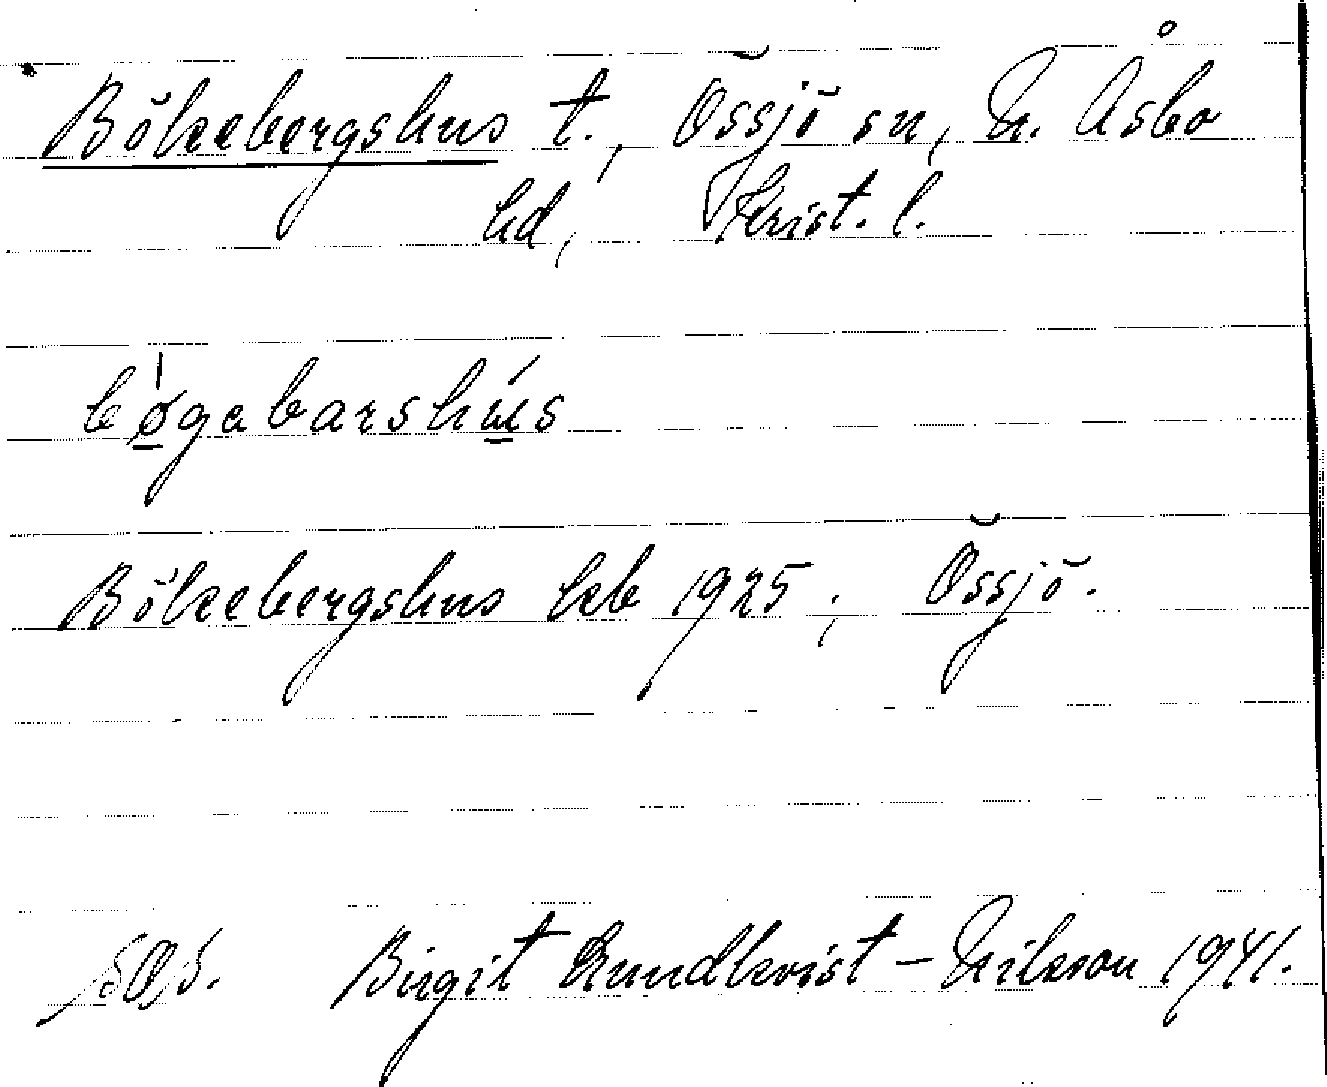 Bökebergshus t., Össjö sn, N. Åsbo
hd, Krist. l.
bøgabarshus
Bökebergshus heb 1925, Össjö.
Birgit Lundkvist - Nilsson 1941.